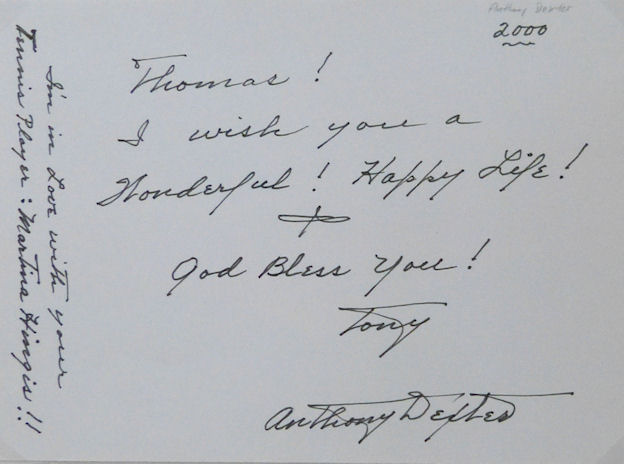 Anthony Dexter
2000
Thomas!
I wish you a
Wonderful! Happy Life!
God Bless You!
Tony
Anthony Dexter
I'm in Love with your
Tennis Player: Martina Hingis!!